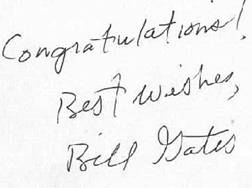 Congratulations!
Best wishes,
Bill Gates